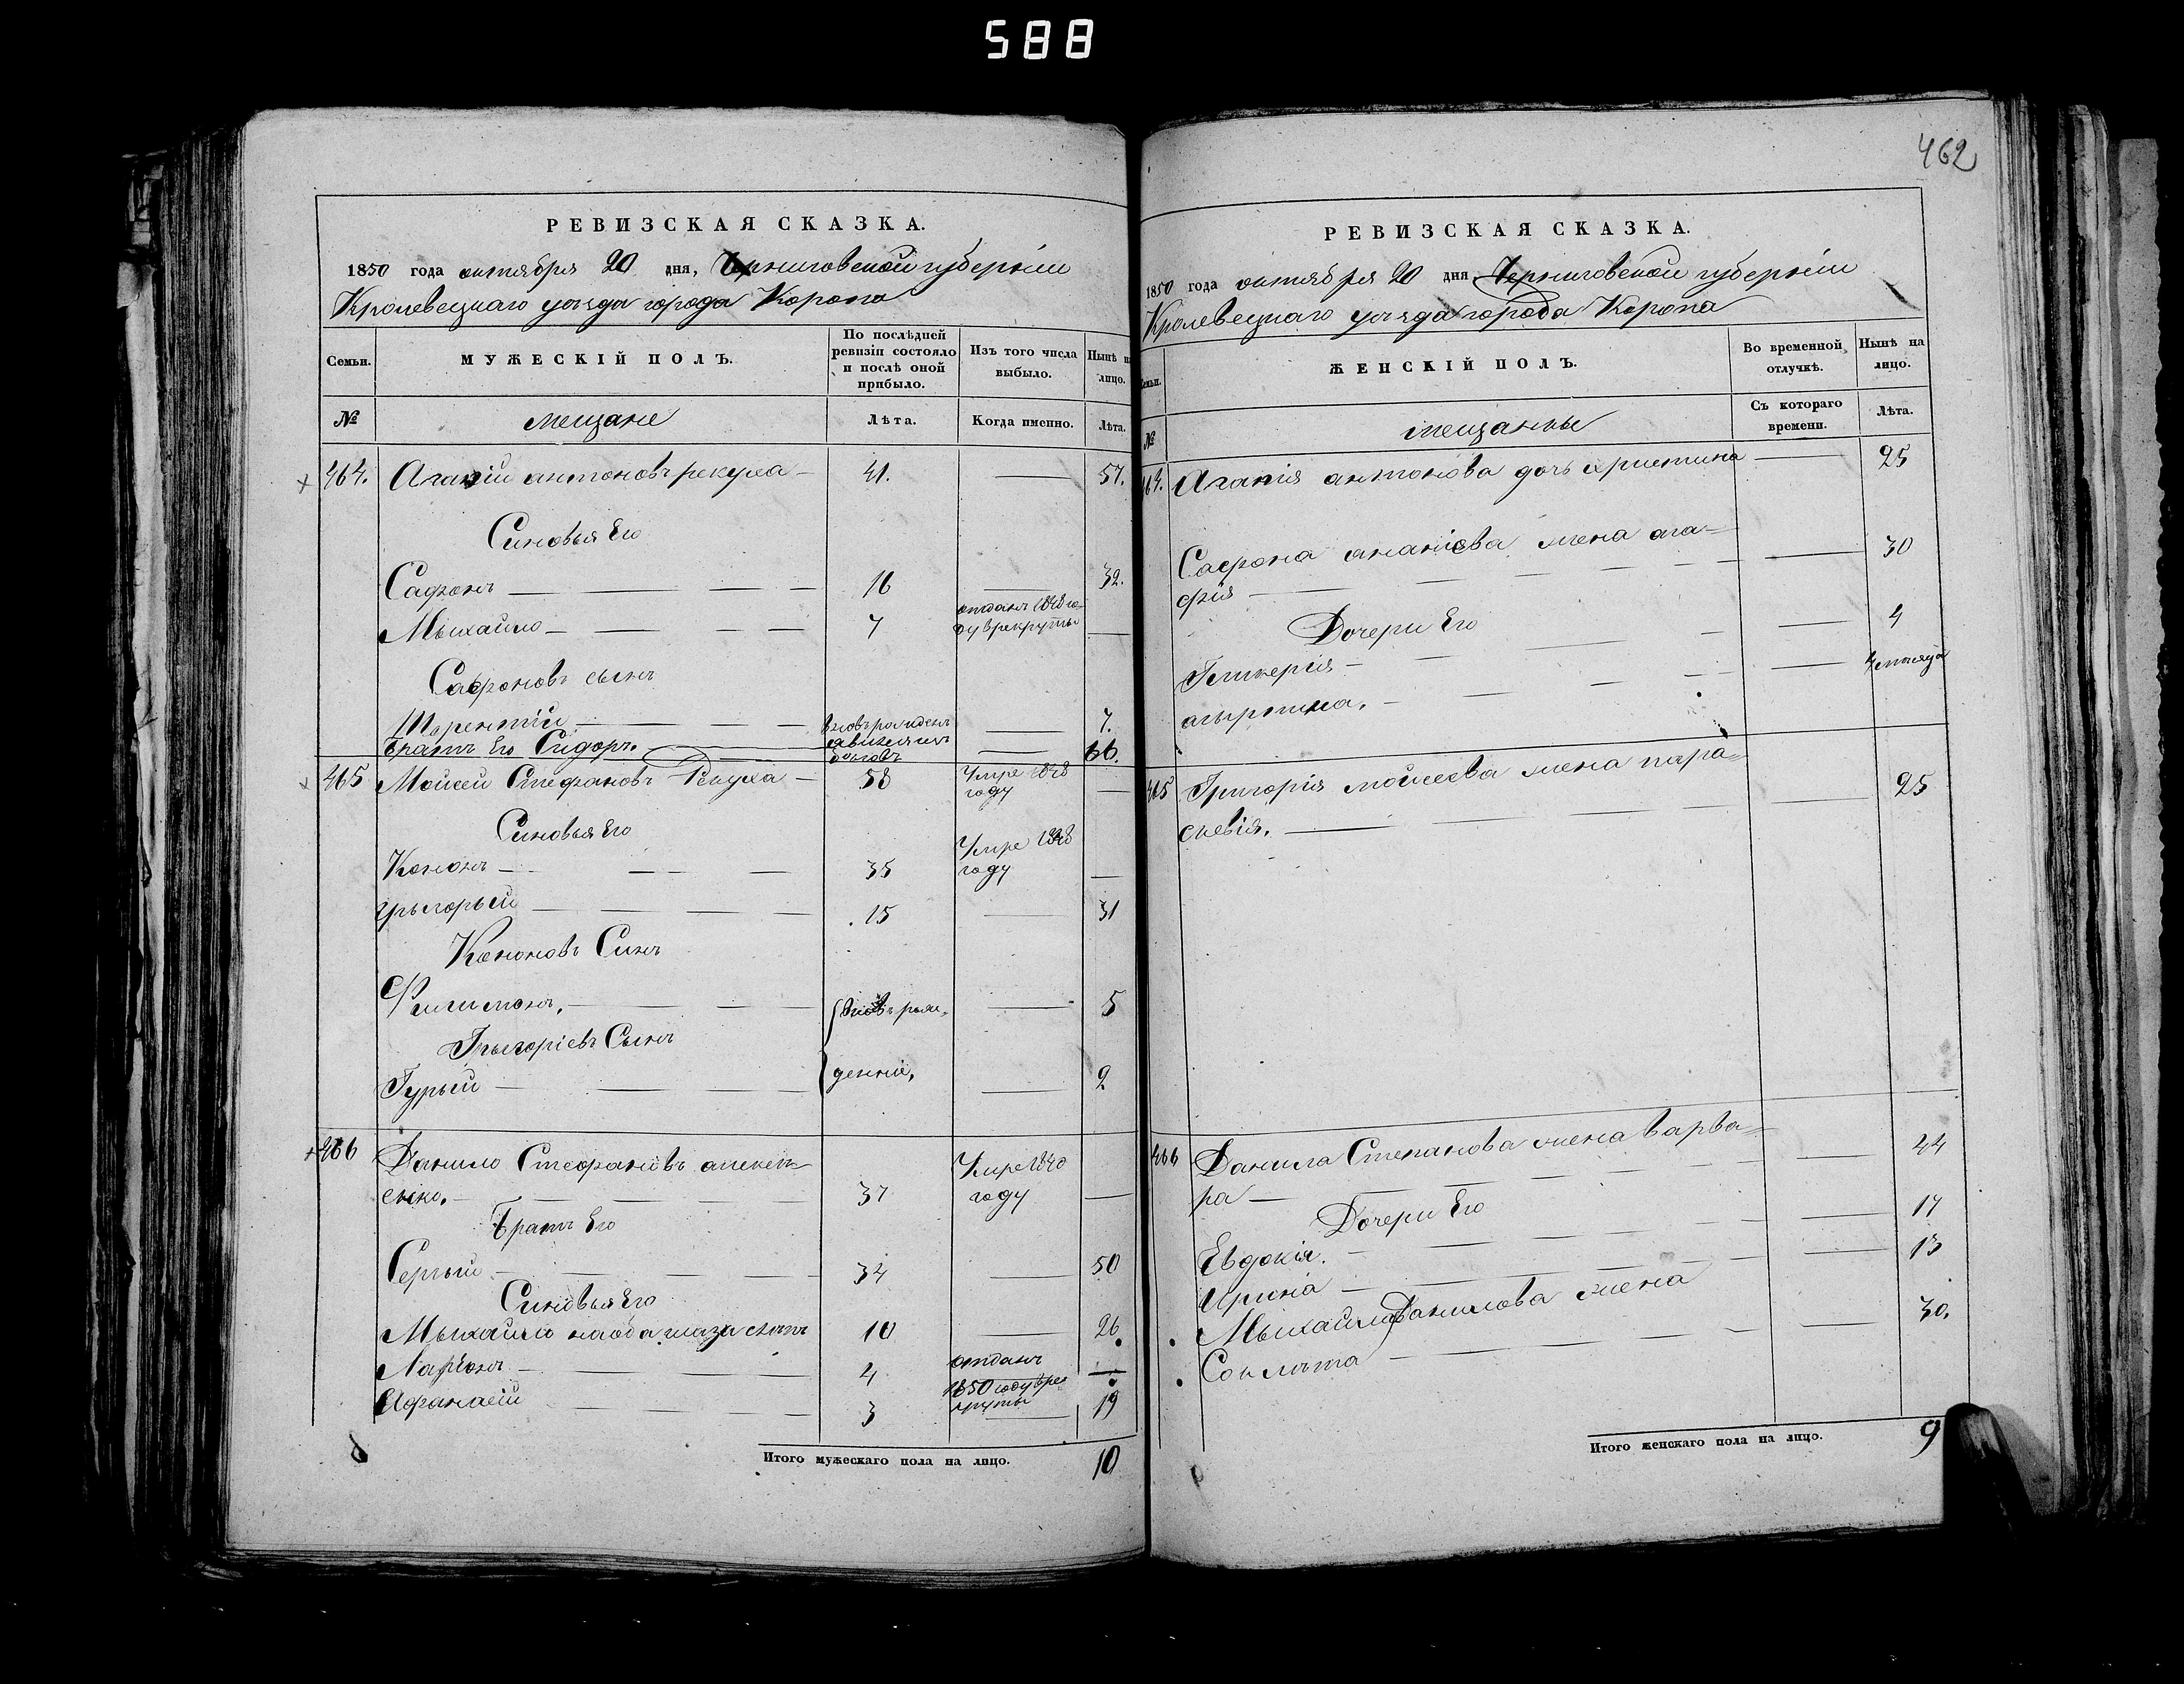 588
462
РЕВИЗСКАЯ СКАЗКА.
1850 года октября 20 дня, Черниговской губерніи
Кролевецкаго уѣзда города Коропа
Семьи.
МУЖЕСКІЙ ПОЛЪ.
По послѣдней
ревизіи состояло
и послѣ оной
прибыло.
Изъ того числа
выбыло.
Нынѣ на
лицо.
№
мещане
Лѣта.
Когда именно.
Лѣта.
464. антоновъ рекуха 41. 57.
Синовья Его
Сафонъ 16 32.
Мыхайло 7 отданъ 1848 го-
ду врекруты
Сафроновъ сынъ
Терентій вновь рожденъ 7.
Братъ Его Сидоръ. 66.
465 Мойсей Стефановъ Рекуха 58 Умре 1848
году
Синовья Его
Кононъ 35 Умре 1848
году
Грыгорый 15 31
Кононовъ Синъ
Филимонъ. вновь рож- 5
Грыгоріевъ Сынъ
Гурый денніе, 2
466 Данило Стефановъ
сенко. 37 Умре 1840
году
Братъ Его
Сергый 34 50
Синовья Его
Мыхайло на оба глаза слѣпъ 10 26
Ларіонъ 4 отданъ
1850 году врек
круты
Афанасій 3 19
Итого мужескаго пола на лицо. 10
РЕВИЗСКАЯ СКАЗКА.
1850 года октября 20 дня Черниговской губерніи
Кролевецкаго уѣзда города Коропа
Семьи.
ЖЕНСКІЙ ПОЛЪ.
Во временной
отлучкѣ.
Нынѣ на
лицо.
№
мещанкы
Съ котораго
времени.
Лѣта.
464. антонова дочь христина 25
Сафрона ананіева жена ага-
фія 30
Дочери Его
Гликерія 4
агырпина. 4 мѣсяца
465 Григорія мойсеева жена пара-
скевія. 25
466 Данила Степанова жена варва-
ра 44
Дочери Его
Евдокія. 17
Ирина 13
Мыхайла Данилова жена
30.
Итого женскаго пола на лицо. 9